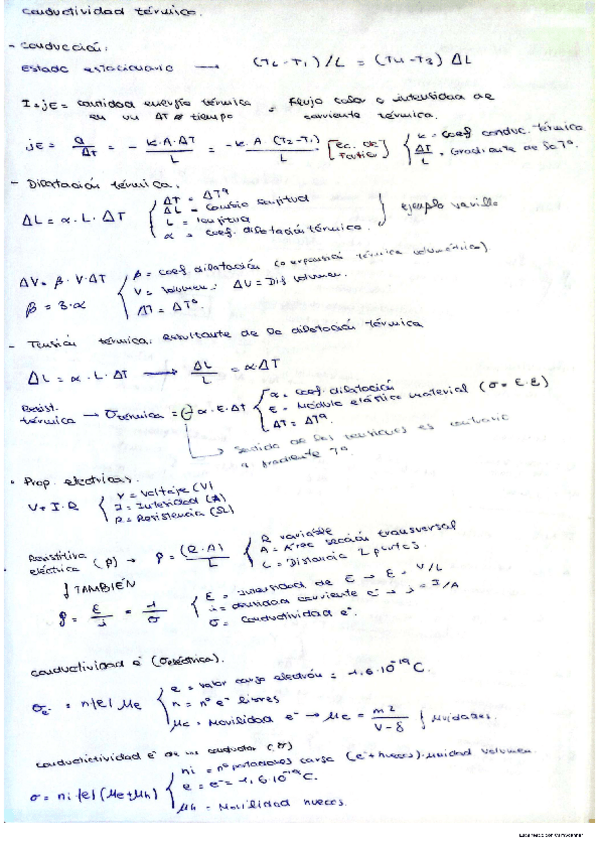 conductividad térmica.
- Conducción:
estado estacionario → (T2 - T1)/L = (T4 - T3) ΔL
I = jE = cantidad energía térmica = Flujo calor o intensidad de
en un ΔT tiempo corriente térmica.
jE = Q/ΔT = - K.A.ΔT/L = -K.A (T2-T1)/L [Ec. de] { K = Coef conduc. térmica
ΔT/L = Gradiente de la Tª.
- Dilatación térmica.
ΔL = α.L.ΔT { ΔT = ΔTª
ΔL = Cambio longitud
L = longitud
α = coef. dilatación térmica. } ejemplo varilla
ΔV = β.V.ΔT { β = coef dilatación (o expansión térmica volumétrica).
V = Volumen. ΔV = Dif volumen.
β = 3.α ΔT = ΔTª.
- Tensión térmica: resultante de la dilatación térmica
ΔL = α.L.ΔT → ΔL/L = α.ΔT
Resist. térmica → σtérmica = (-) α.E.ΔT { α = coef. dilatación
E = Módulo elástico material (σ = E.ε)
ΔT = ΔTª.
→ Sentido de las tensiones es contrario
a gradiente Tª
• Prop. electricas.
V = I.R { V = Voltaje (V)
I = Intensidad (A)
R = Resistencia (Ω)
Resistitiva
eléctrica (ρ) → ρ = (R.A)/L { R variable
A = Área sección transversal
L = Distancia 2 puntos.
TAMBIÉN
ρ = E/j = 1/σ { E = Intensidad de E → E = V/L
j = densidad corriente e⁻ → j = I/A
σ = Conductividad e⁻.
conductividad e⁻ (σeléctrica).
σe⁻ = n|e| μe { e = valor carga electrón = 1,6.10⁻¹⁹ C.
n = nº e⁻ libres
μe = Movilidad e⁻ → μe = m²/V-s } unidades.
conductictividad e⁻ de un conductor (σ)
σ = ni|e|(μe+μh) { ni = nº portadores carga (e⁻+huecos).unidad volumen
e = e⁻ = 1,6.10⁻¹⁹ C.
μh = Movilidad huecos.